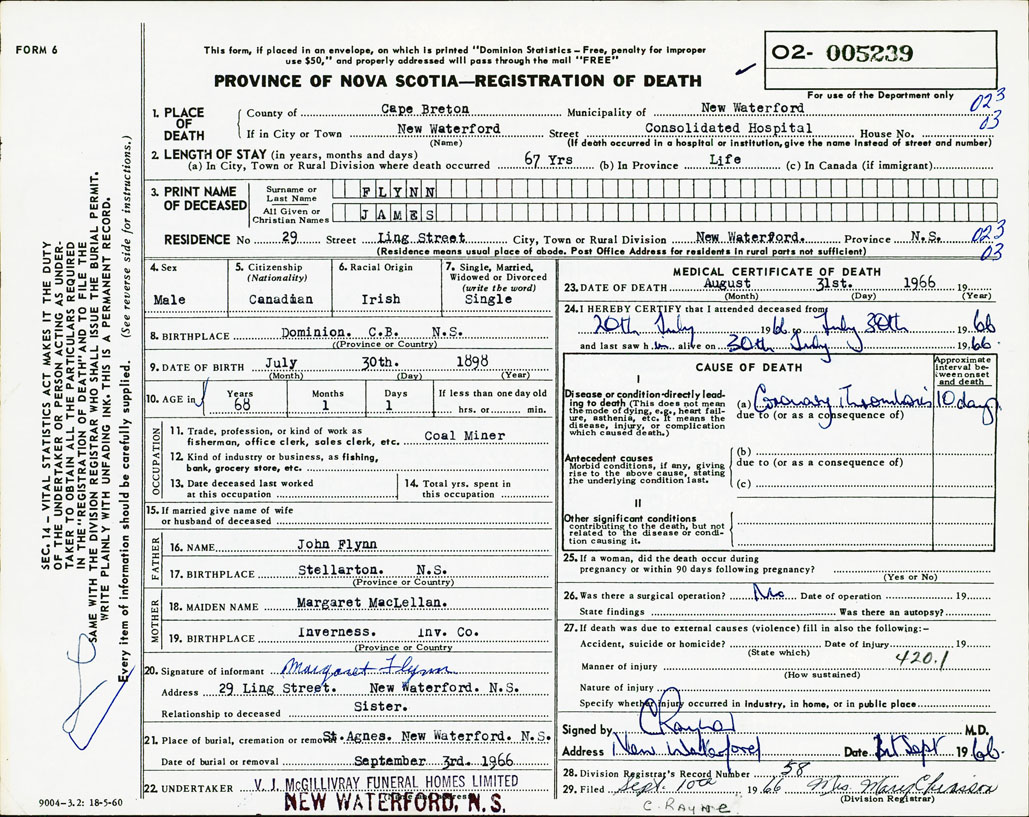 FORM 6
This form, if placed in an envelope, on which is printed "Dominion Statistics – Free, penalty for improper
use $50," and properly addressed will pass through the mail "FREE"
PROVINCE OF NOVA SCOTIA—REGISTRATION OF DEATH
02- 005239
For use of the Department only
023
03
1. PLACE OF DEATH
County of Cape Breton Municipality of New Waterford
If in City or Town New Waterford Street Consolidated Hospital House No.
(Name) (If death occurred in a hospital or institution, give the name instead of street and number)
2. LENGTH OF STAY (in years, months and days)
(a) In City, Town or Rural Division where death occurred 67 Yrs (b) In Province Life (c) In Canada (if immigrant)
3. PRINT NAME OF DECEASED
Surname or Last Name FLYNN
All Given or Christian Names JAMES
RESIDENCE No 29 Street Ling Street City, Town or Rural Division New Waterford. Province N.S.
023
03
(Residence means usual place of abode. Post Office Address for residents in rural parts not sufficient)
4. Sex
Male
5. Citizenship
(Nationality)
Canadian
6. Racial Origin
Irish
7. Single, Married,
Widowed or Divorced
(write the word)
Single
8. BIRTHPLACE Dominion. C.B. N.S.
(Province or Country)
9. DATE OF BIRTH July 30th. 1898
(Month) (Day) (Year)
10. AGE in Years Months Days If less than one day old
68 1 1 hrs. or min.
OCCUPATION
11. Trade, profession, or kind of work as
fisherman, office clerk, sales clerk, etc. Coal Miner
12. Kind of industry or business, as fishing,
bank, grocery store, etc.
13. Date deceased last worked
at this occupation
14. Total yrs. spent in
this occupation
15. If married give name of wife
or husband of deceased
FATHER
16. NAME John Flynn
17. BIRTHPLACE Stellarton. N.S.
(Province or Country)
MOTHER
18. MAIDEN NAME Margaret MacLellan.
19. BIRTHPLACE Inverness. Inv. Co.
(Province or Country)
20. Signature of informant Margaret Flynn
Address 29 Ling Street. New Waterford. N.S.
Relationship to deceased Sister.
21. Place of burial, cremation or removal St. Agnes. New Waterford. N.S.
Date of burial or removal September 3rd. 1966
22. UNDERTAKER V. J. McGILLIVRAY FUNERAL HOMES LIMITED
NEW WATERFORD, N.S.
MEDICAL CERTIFICATE OF DEATH
23. DATE OF DEATH August 31st. 1966 19
(Month) (Day) (Year)
24. I HEREBY CERTIFY that I attended deceased from
20th July 1966 to July 30th 1966
and last saw him alive on 30th July 1966
CAUSE OF DEATH
Approximate
interval be-
tween onset
and death
I
Disease or condition directly lead-
ing to death (This does not mean
the mode of dying, e.g., heart fail-
ure, asthenia, etc. It means the
disease, injury, or complication
which caused death.)
(a) Coronary Thrombosis 10 days
due to (or as a consequence of)
Antecedent causes
Morbid conditions, if any, giving
rise to the above cause, stating
the underlying condition last.
(b)
due to (or as a consequence of)
(c)
II
Other significant conditions
contributing to the death, but not
related to the disease or condi-
tion causing it.
25. If a woman, did the death occur during
pregnancy or within 90 days following pregnancy?
(Yes or No)
26. Was there a surgical operation? No Date of operation 19
State findings Was there an autopsy?
27. If death was due to external causes (violence) fill in also the following:–
Accident, suicide or homicide? Date of injury 19
(State which)
420.1
Manner of injury
(How sustained)
Nature of injury
Specify whether injury occurred in industry, in home, or in public place
Signed by C Rayne M.D.
Address New Waterford Date 1st Sept 1966
28. Division Registrar's Record Number 58
29. Filed Sept. 10th 1966 Mrs. Mary Chiasson
(Division Registrar)
C. RAYNE
SEC. 14 – VITAL STATISTICS ACT MAKES IT THE DUTY
OF THE UNDERTAKER OR PERSON ACTING AS UNDER-
TAKER TO OBTAIN ALL THE PARTICULARS REQUIRED
IN THE "REGISTRATION OF DEATH" AND TO FILE THE
SAME WITH THE DIVISION REGISTRAR WHO SHALL ISSUE THE BURIAL PERMIT.
WRITE PLAINLY WITH UNFADING INK. THIS IS A PERMANENT RECORD.
Every item of information should be carefully supplied. (See reverse side for instructions.)
9004–3.2: 18-5-60